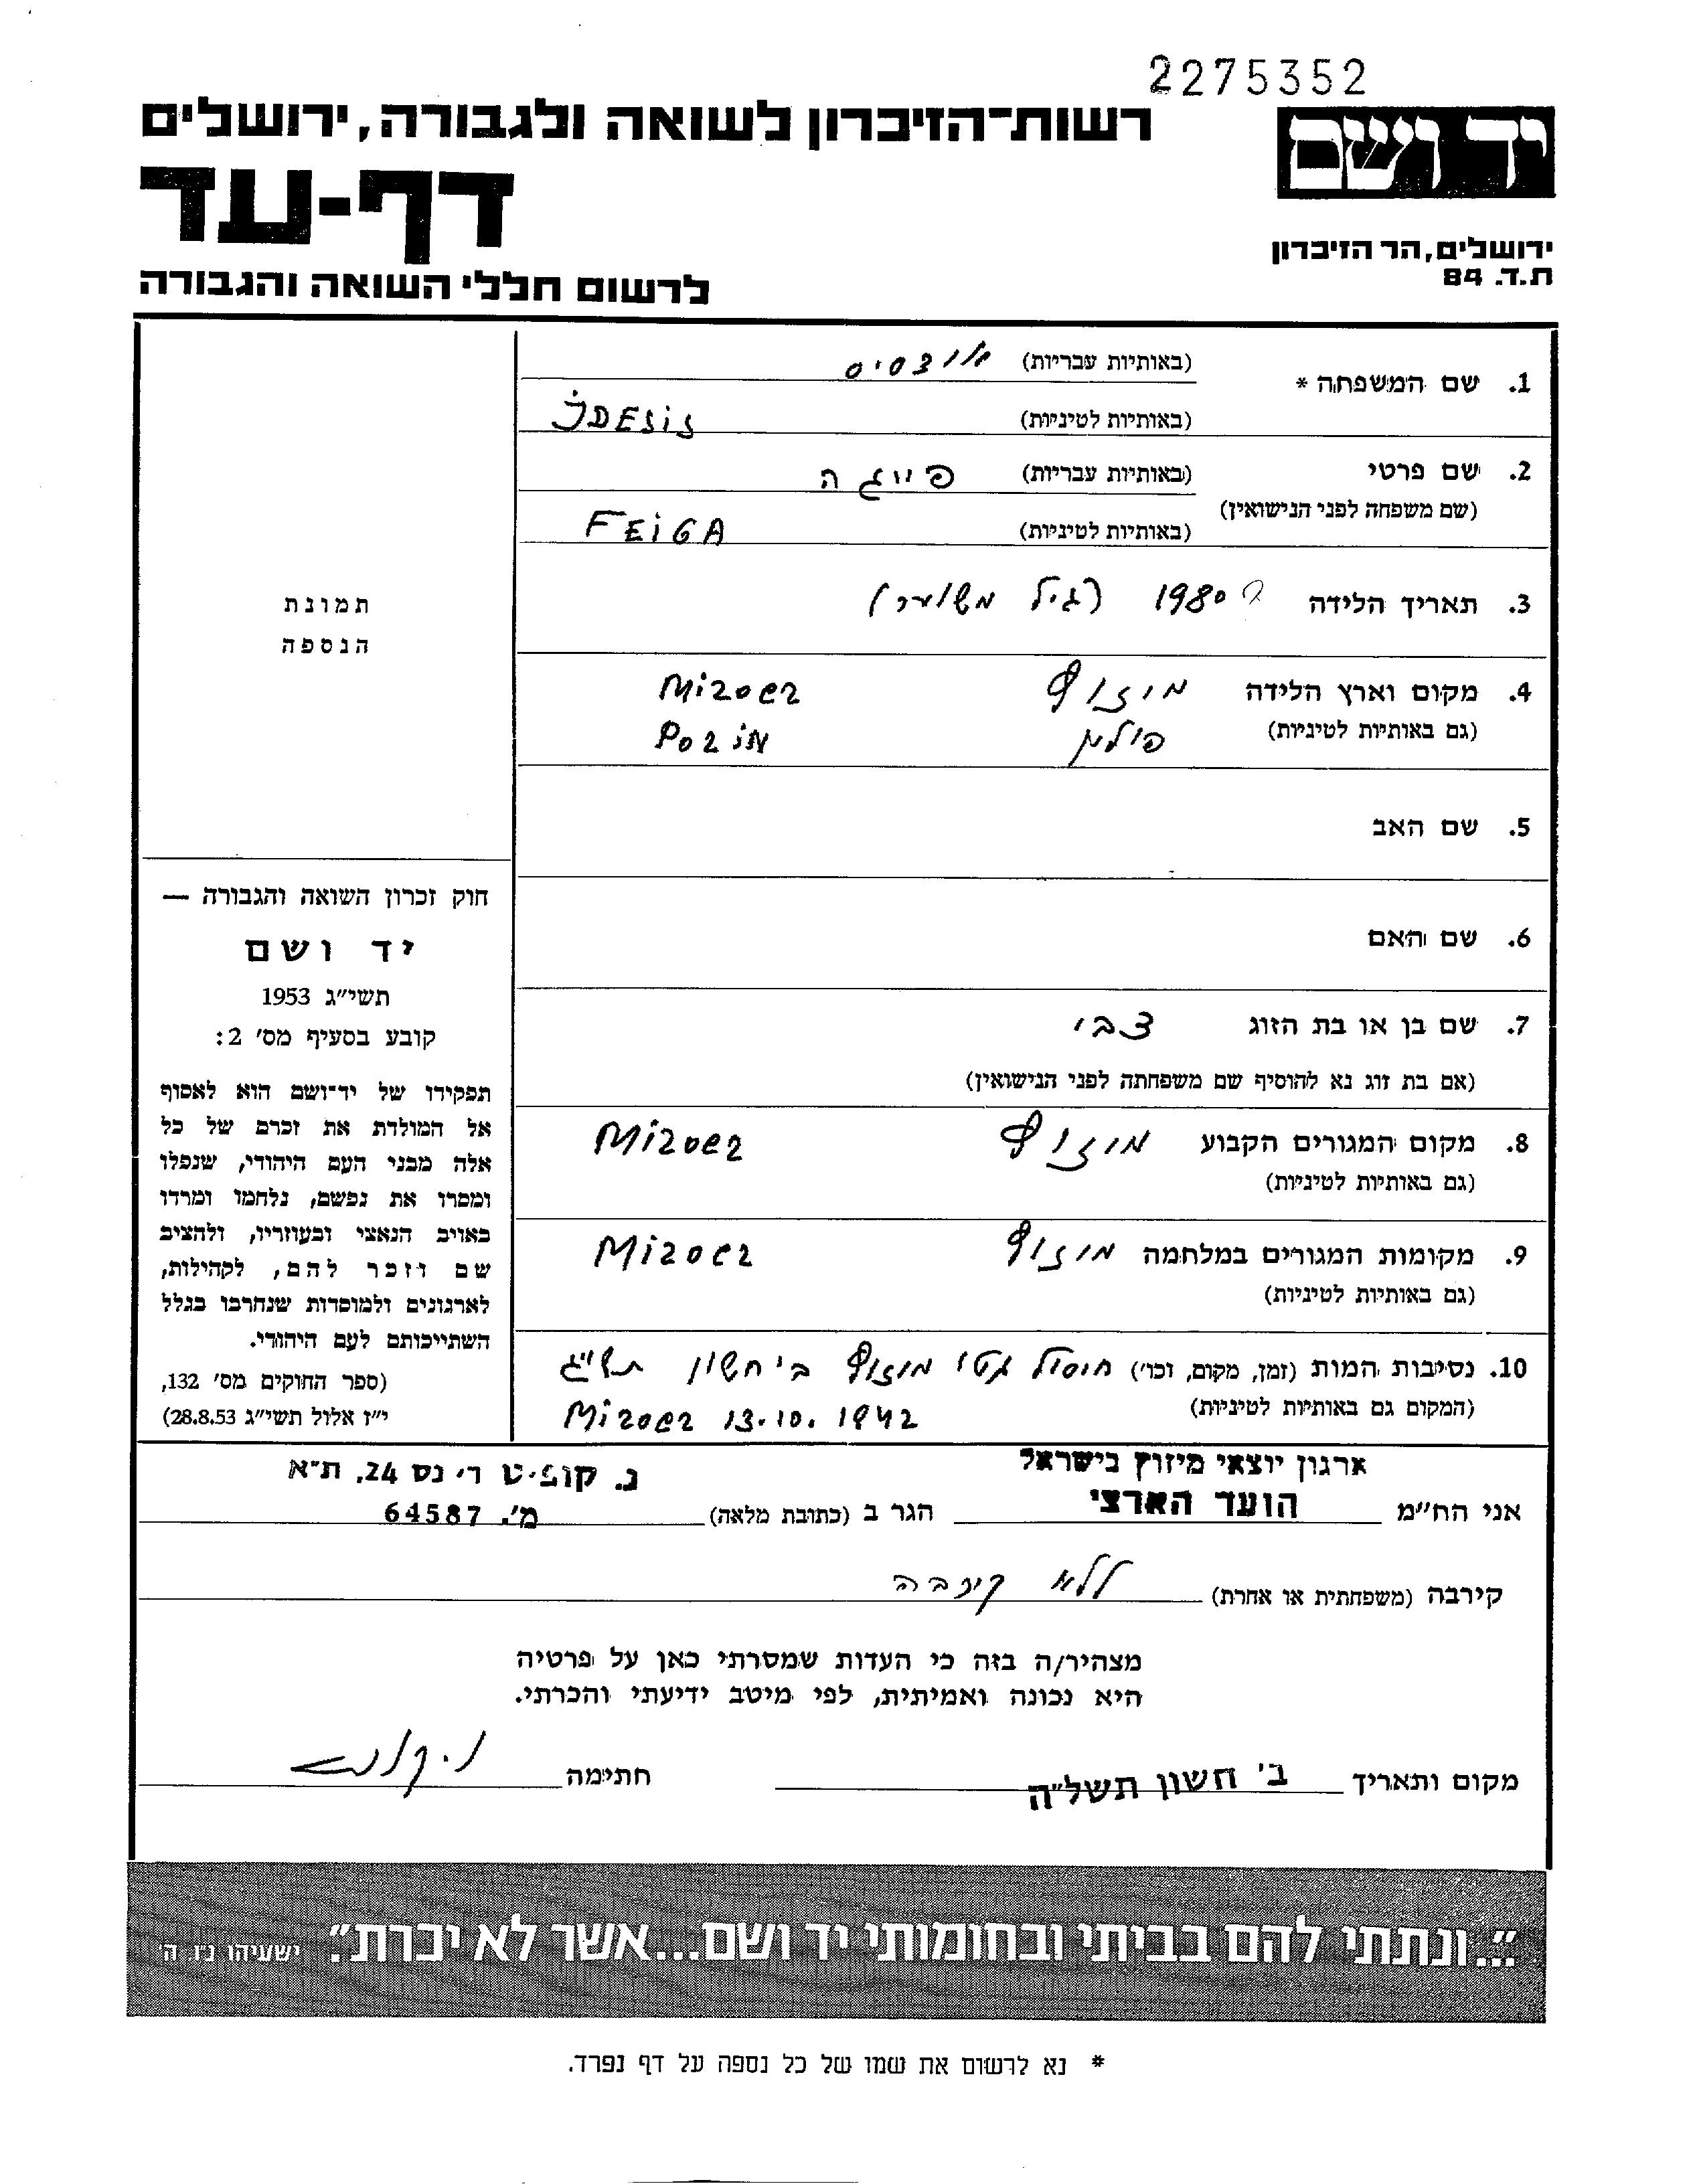 2275352
רשות־הזיכרון לשואה ולגבורה, ירושלים
יד ושם
דף-עד
ירושלים, הר הזיכרון
ת.ד. 84
לרשום חללי השואה והגבורה
1. שם המשפחה *
(באותיות עבריות)
(באותיות לטיניות) JDESiS
2. שם פרטי
(שם משפחה לפני הנישואין)
(באותיות עבריות) פייגה
(באותיות לטיניות) FEiGA
3. תאריך הלידה 1980 (גיל משוער)
4. מקום וארץ הלידה מיזוץ Mizocz
(גם באותיות לטיניות) פולין PoliN
5. שם האב
6. שם האם
7. שם בן או בת הזוג צבי
(אם בת זוג נא להוסיף שם משפחתה לפני הנישואין)
8. מקום המגורים הקבוע מיזוץ Mizocz
(גם באותיות לטיניות)
9. מקומות המגורים במלחמה מיזוץ Mizocz
(גם באותיות לטיניות)
10. נסיבות המות (זמן, מקום, וכו') חיסול גטו מיזוץ ב' חשון תש"ג
(המקום גם באותיות לטיניות) Mizocz 13.10.1942
תמונת
הנספה
חוק זכרון השואה והגבורה —
יד ושם
תשי"ג 1953
קובע בסעיף מס' 2:
תפקידו של יד־ושם הוא לאסוף
אל המולדת את זכרם של כל
אלה מבני העם היהודי, שנפלו
ומסרו את נפשם, נלחמו ומרדו
באויב הנאצי ובעוזריו, ולהציב
שם וזכר להם, לקהילות,
לארגונים ולמוסדות שנחרבו בגלל
השתייכותם לעם היהודי.
(ספר החוקים מס' 132,
י"ז אלול תשי"ג 28.8.53)
ארגון יוצאי מיזוץ בישראל
נ. קופיט ר' נס 24, ת"א
אני הח"מ הועד הארצי הגר ב (כתובת מלאה) מ'. 64587
קירבה (משפחתית או אחרת) ללא קירבה
מצהיר/ה בזה כי העדות שמסרתי כאן על פרטיה
היא נכונה ואמיתית, לפי מיטב ידיעתי והכרתי.
מקום ותאריך ב' חשון תשל"ה חתימה
"...ונתתי להם בביתי ובחומותי יד ושם...אשר לא יכרת." ישעיהו נ"ו ה'
* נא לרשום את שמו של כל נספה על דף נפרד.